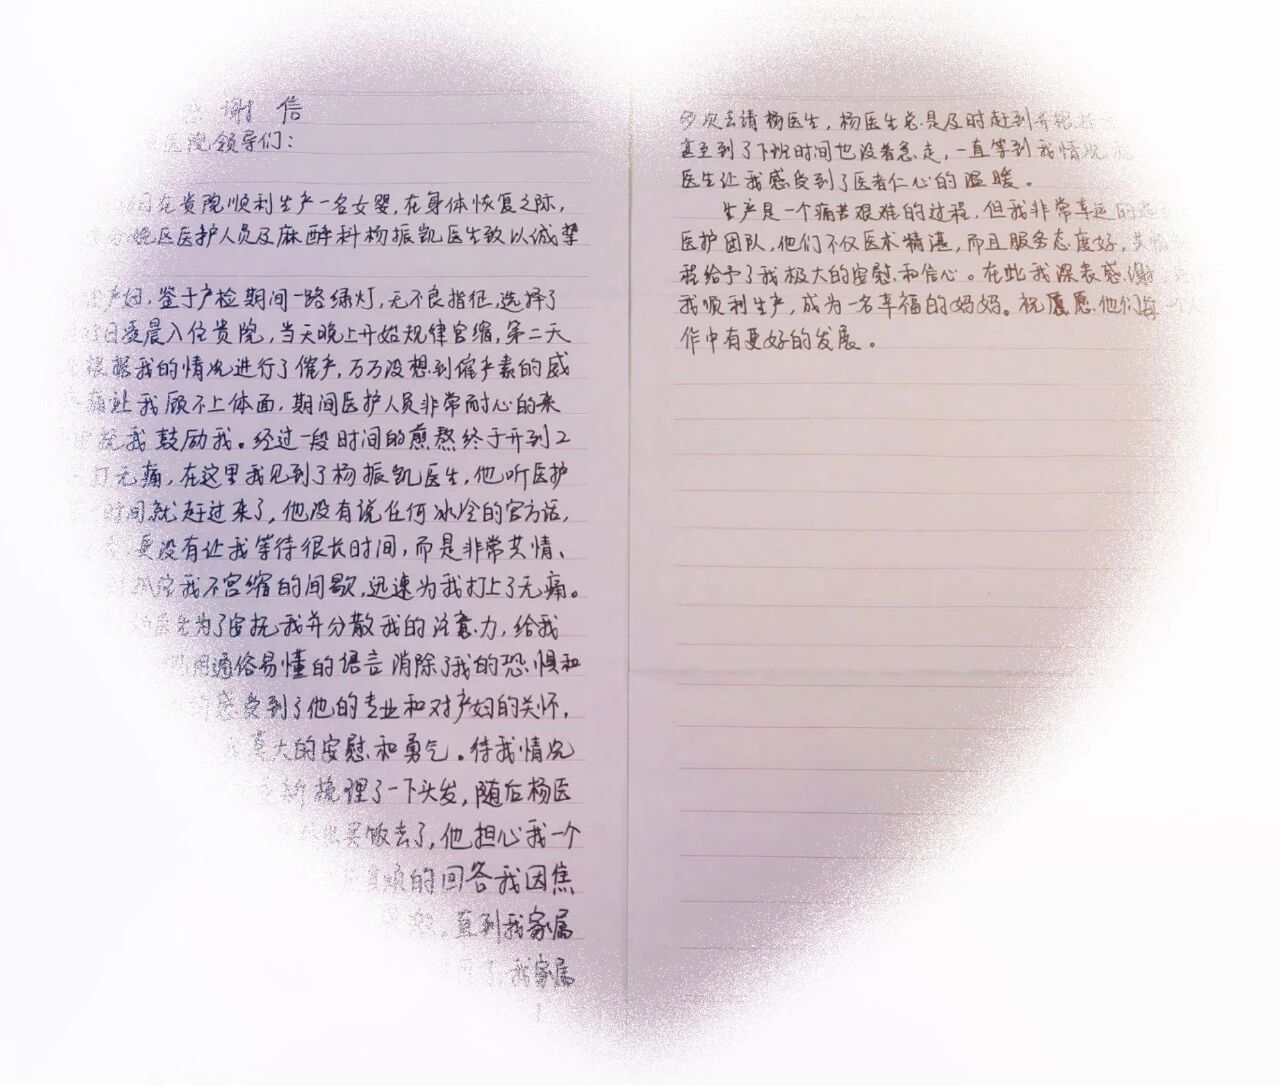 谢信
医院领导们：
日在贵院顺利生产一名女婴，在身体恢复之际，
娩区医护人员及麻醉科杨振凯医生致以诚挚
产妇，鉴于产检期间一路绿灯，无不良指征，选择了
日凌晨入住贵院，当天晚上开始规律宫缩，第二天
根据我的情况进行了催产，万万没想到催产素的威
痛让我顾不上体面，期间医护人员非常耐心的来
抚我鼓励我。经过一段时间的煎熬终于开到2
打无痛，在这里我见到了杨振凯医生，他听医护
时间就赶过来了，他没有说任何冰冷的官方话，
更没有让我等待很长时间，而是非常共情、
抓住我不宫缩的间歇，迅速为我打上了无痛。
医生为了安抚我并分散我的注意力，给我
用通俗易懂的语言消除了我的恐惧和
感受到了他的专业和对产妇的关怀，
莫大的安慰和勇气。待我情况
新梳理了一下头发，随后杨医
买饭去了，他担心我一个
烦的回答我因焦
直到我家属
我家属
多次去请杨医生，杨医生总是及时赶到并根据
甚至到了下班时间也没着急走，一直等到我情况
医生让我感受到了医者仁心的温暖。
生产是一个痛苦艰难的过程，但我非常幸运的
医护团队，他们不仅医术精湛，而且服务态度好，
程给予了我极大的安慰和信心。在此我深表感谢，
我顺利生产，成为一名幸福的妈妈。祝愿他们每一个人
作中有更好的发展。